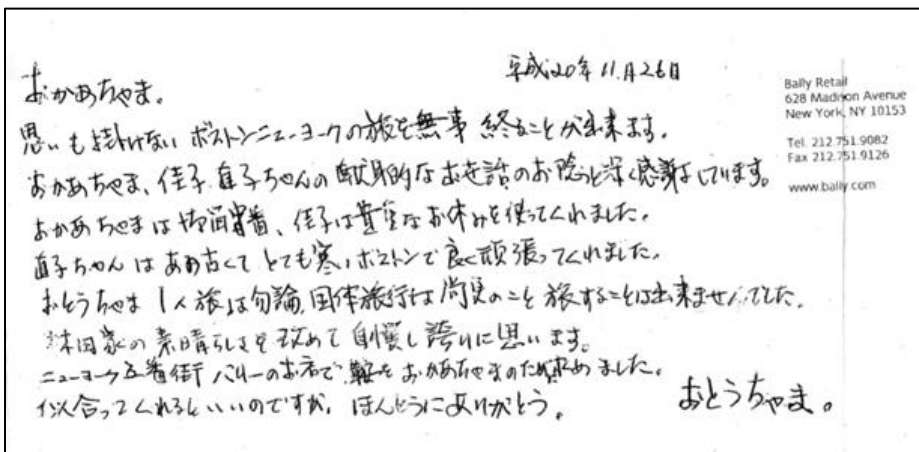 平成20年11月26日
おかあちゃま。
思いも掛けない ボストンニューヨークの旅を無事 終ることが出来ます。
おかあちゃま、佳子、直子ちゃんの献身的なお世話のお陰と深く感謝しています。
おかあちゃまはお留守番、佳子は貴重なお休みを使ってくれました。
直子ちゃんは あの古くて とても寒いボストンで良く頑張ってくれました。
おとうちゃま 1人旅は勿論、団体旅行は尚更のこと 旅することは出来ませんでした。
家の素晴らしさを改めて自覚し誇りに思います。
ニューヨーク五番街 バリーのお店で 靴を おかあちゃまのため求めました。
似合ってくれるといいのですが、ほんとうにありがとう。
おとうちゃま。
Bally Retail
628 Madison Avenue
New York, NY 10153
Tel. 212.751.9082
Fax 212.751.9126
www.bally.com